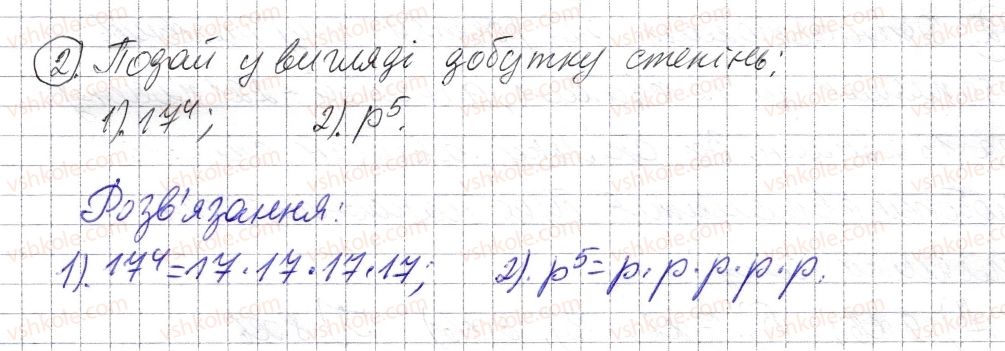 2). Подай у вигляді добутку степінь:
1). 17⁴; 2). p⁵.
Розв'язання:
1). 17⁴=17·17·17·17; 2). p⁵=p·p·p·p·p.